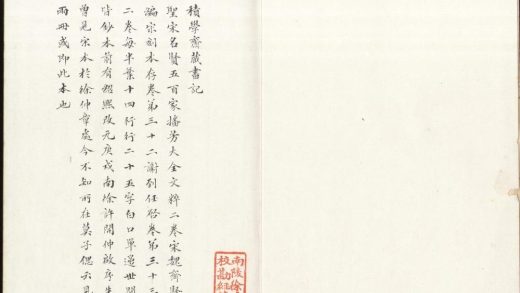 積學齋藏書記
聖宋名賢五百家播芳大全文粹二卷宋魏齊賢
編宋刻本存卷第三十二謝到任啓卷第三十三
二卷每半葉十四行行二十五字白口單邊世間
皆鈔本前有紹熙改元庚戌南徐許開仲啟序
曾見宋本於徐仲章處今不知所在莫子偲云見
兩冊或即此本也
南陵徐
校勘經